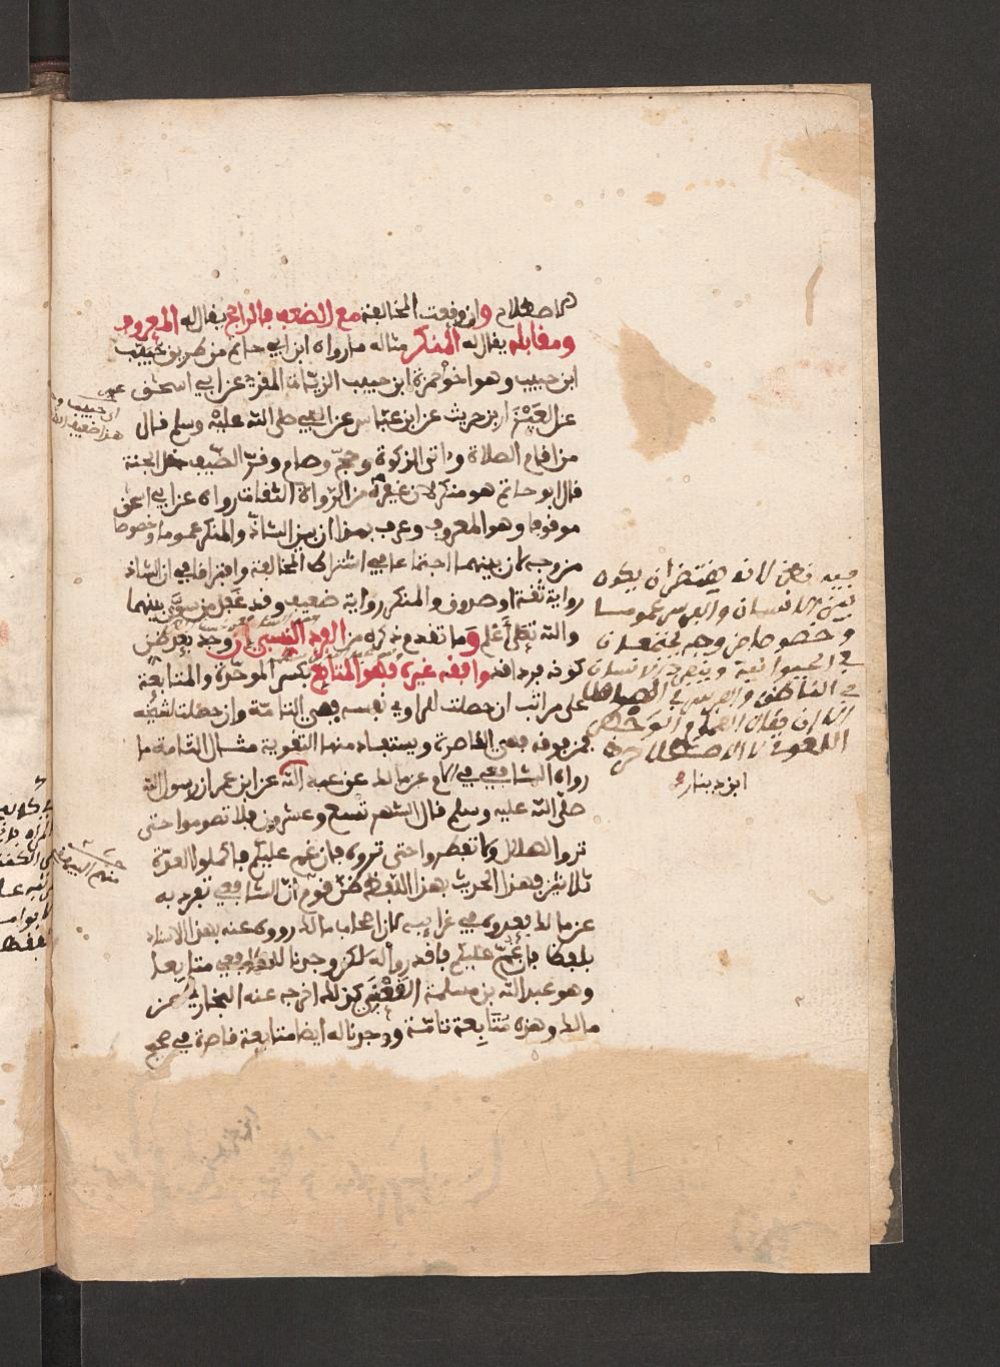 الاصطلاح وان وقعت المخالفة مع الضعف فالراجح يقال له المعروف
ومقابله يقال له المنكر مثاله ما رواه ابن ابي حاتم من طريق حبيب
ابن حبيب وهو اخو حمزة ابن حبيب الزيات المقرئ عن ابي اسحق
عن العيزار بن حريث عن ابن عباس عن النبي صلى الله عليه وسلم قال
من اقام الصلاة واتى الزكوة وحج وصام وقرى الضيف دخل الجنة
قال ابو حاتم هو منكر لان غيره من الرواة الثقات رواه عن ابي اسحق
موقوفا وهو المعروف وعرف بهذا ان بين الشاذ والمنكر عموما وخصوصا
من وجه لان بينهما اجتماعا في اشتراط المخالفة وافتراقا في ان الشاذ
رواية ثقة او صدوق والمنكر رواية ضعيف وقد غفل من سوى بينهما
والله تعلى أعلم وما تقدم ذكره من الفرد النسبي ان وجد بعد ظن
كونه فردا قد وافقه غيره فهو المتابع بكسر الموحدة والمتابعة
على مراتب ان حصلت للراوي نفسه فهي التامة وان حصلت لشيخه
فمن فوقه فهي القاصرة ويستفاد منها التقوية مثال التامة ما
رواه الشافعي في الام عن مالك عن عبد الله عن ابن عمر ان رسول الله
صلى الله عليه وسلم قال الشهر تسع وعشرون فلا تصوموا حتى
تروا الهلال ولا تفطروا حتى تروه فان غم عليكم فاكملوا العدة
ثلاثين فهذا الحديث بهذا اللفظ ظن قوم ان الشافعي تفرد به
عن مالك فعدوه في غرايبه لان اصحاب مالك رووه عنه بهذا الاسناد
بلفظ فان غم عليكم فاقدروا له لكن وجدنا للشافعي متابعا
وهو عبد الله بن مسلمة القعنبي كذلك اخرجه عنه البخاري عن
مالك وهذه متابعة تامة ووجدنا له ايضا متابعة قاصرة في صحيح
فيه نظر لانه يقتضي ان يكون
بين الانسان والفرس عموما
وخصوصا من وجه يجتمعان
في الحيوانية وينفرد الانسان
في الناطق والفرس في الصاهل
الا ان يقال العموم
اللغوي لا الاصطلاحي
ابن دينار